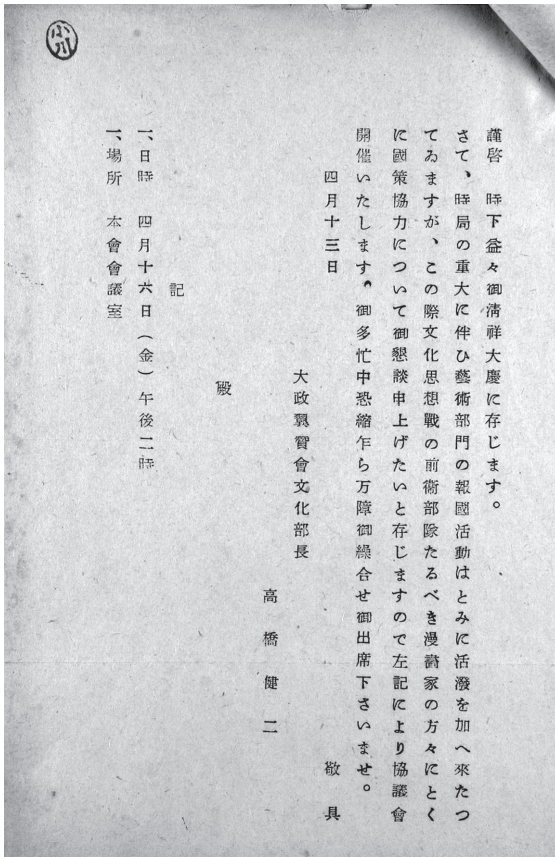 謹啓　時下益々御淸祥大慶に存じます。
さて、時局の重大に伴ひ藝術部門の報國活動はとみに活潑を加へ來たつ
てゐますが、この際文化思想戰の前衞部隊たるべき漫畵家の方々にとく
に國策協力について御懇談申上げたいと存じますので左記により協議會
開催いたします。御多忙中恐縮乍ら万障御繰合せ御出席下さいませ。
四月十三日　敬具
大政翼賛會文化部長
高橋健二
殿
記
一、日時　四月十六日（金）午後二時
一、場所　本會會議室
小川